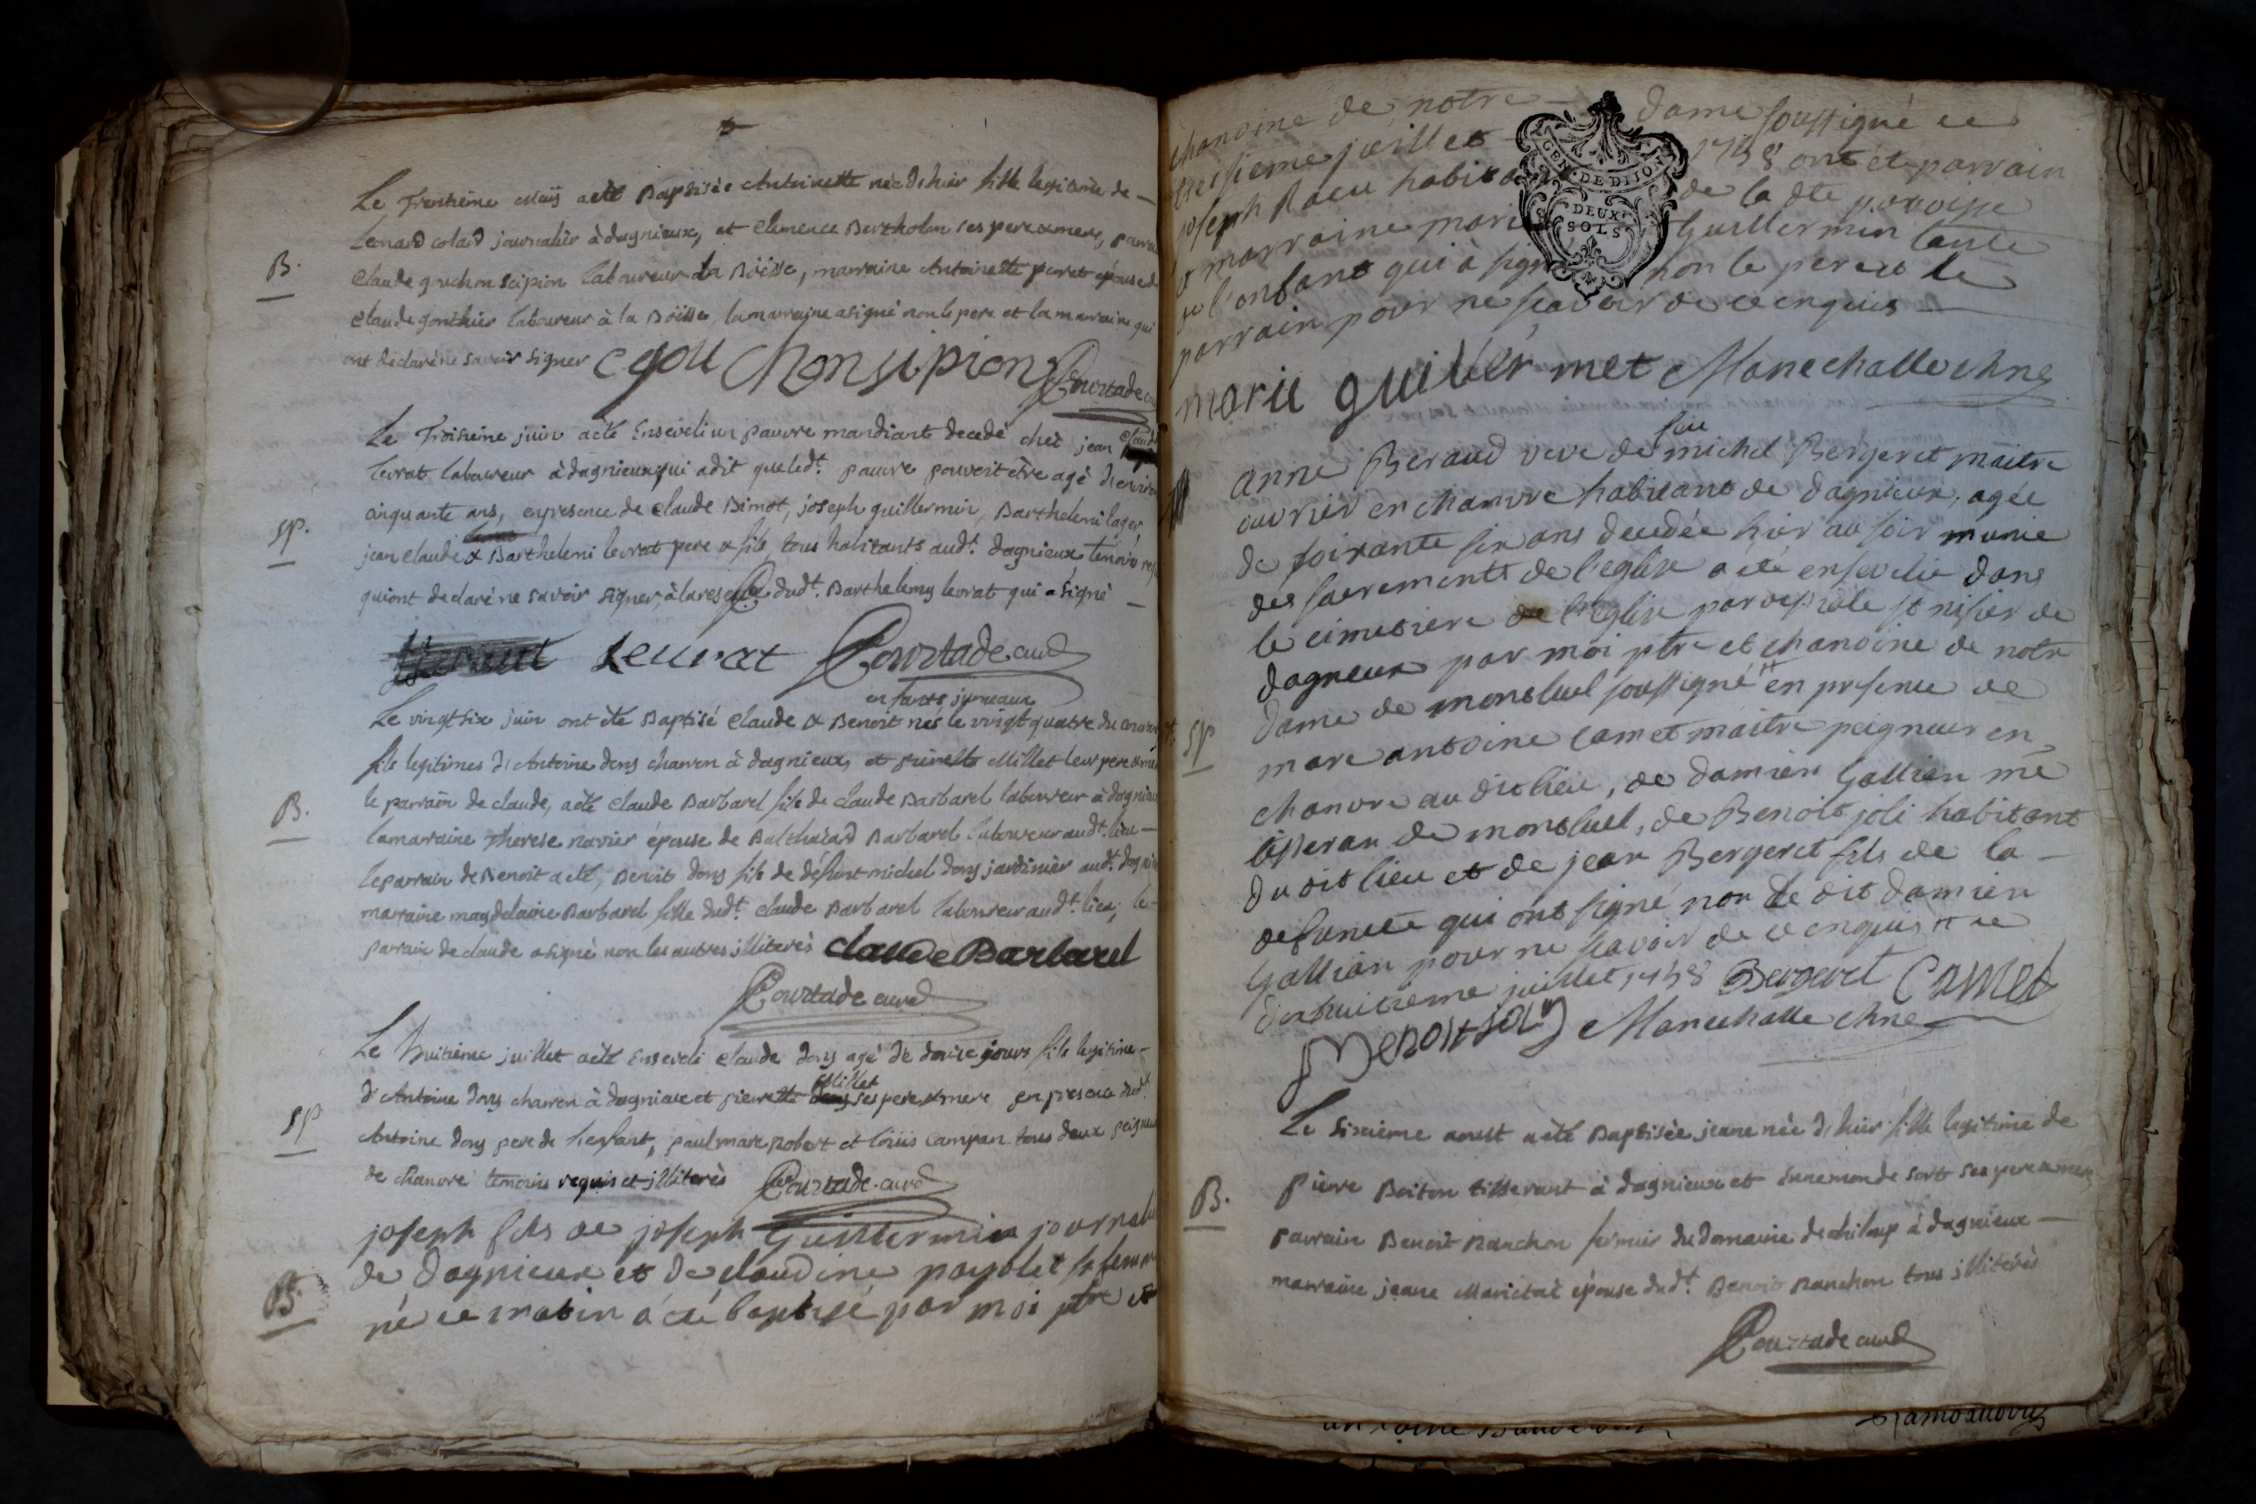 Le Trentième May a eté Baptisée Antoinette née d'hier fille legitime de
Lenard colad journalier à dagnieux, et Clemence Bertholon ses pere et mere,
B.
Claude gouchon scipion laboureur à la Böisse, marraine Antoinette perret épouse de
Claude gonthier laboureur à la Böisse, la marraine a signé non le pere et la marraine qui
ont declaré ne savoir signer C gou chon sipion Courtade
Le Troisième juin a eté Enseveli un pauvre mandiant decedé chéz jean claude
levrat laboureur à dagnieux qui a dit que led.t pauvre pouvoit être agé d'environ
cinquante ans, en presence de Claude Bimot, joseph guillermin, Barthelemi lager
sp.
jean claude & Barthelemi levrat pere & fils, tous habitants aud.t dagnieux temoins
qui ont declaré ne savoir signer, à la reserve dud.t Barthelemy levrat qui a signé
Leurat Courtade curé
en fants jumeaux
Le vingt six juin ont eté Baptisé Claude & Benoit nés le vingt quatre du
fils legitimes d'Antoine dony charron à dagnieux, et pierrette Millet leur pere & mere
B.
le parrain de claude, a eté Claude Barbarel fils de claude Barbarel laboureur à dagnieux
la marraine Therese navier épouse de Balthazard Barbarel laboureur aud.t lieu
le parrain de Benoit a eté, Benoit dony fils de défunt michel dony jardinier aud.t
marraine magdelaine Barbarel fille dud.t claude Barbarel laboureur aud.t lieu, le
parrain de claude a signé non les autres illiterés claude Barbarel
Courtade curé
Le huitième juillet a eté Enseveli Claude dony agé de douze jours fils legitime
Millet
d'Antoine dony charron à dagnieux et pierrette ses pere & mere en presence dud.t
sp
Antoine dony pere de l'enfant, paul marc robert et loüis campan tous deux peigneurs
de chanvre temoins requis et illiterés Courtade curé
joseph fils de joseph Guillermin journalier
de Dagnieux et de claudine payolet sa femme
B.
né ce matin a été baptisé par moi ptre et
chanoine de notre dame soussigné ce
treisieme juillet 1758 ont été parrain
joseph Racu habitant de la dte paroisse
& marraine marie Guillermin tante
de l'enfant qui à signé non le pere et le
parrain pour ne scavoir de ce enquis
GEN. DE DIJON
DEUX SOLS
marie guillermet Marechalle chne
anne Beraud veve de feu michel Bergeret maitre
ouvrier en chanvre habitant de dagnieux, agée
de soixante six ans decedée hier au soir munie
des sacrements de l'eglise a été ensevelie dans
le cimetiere de l'eglise paroissiale st nisier de
dagneux par moi ptre et chanoine de notre
sp
dame de montluel soussigné en presence de
marc antoine camet maitre peigneur en
chanvre au dit lieu, de damien Gallian me
tisseran de montluel, de Benoit joli habitant
du dit lieu et de jean Bergeret fils de la
defuncte qui ont signé non le dit damien
Gallian pour ne scavoir de ce enquis ce
dixhuitieme juillet 1758 Bergeret Camet
Benoit joly Marechalle chne
Le sixième aoust a eté Baptisée jeane née d'hier fille legitime de
B.
pierre Boiton tisserant à dagnieux et Enemonde sort ses pere & mere
parrain Benoit Ranchon fermier du domaine de chiloup à dagnieux
marraine jeane Marictat épouse dud.t Benoit Ranchon tous illiterés
Courtade curé